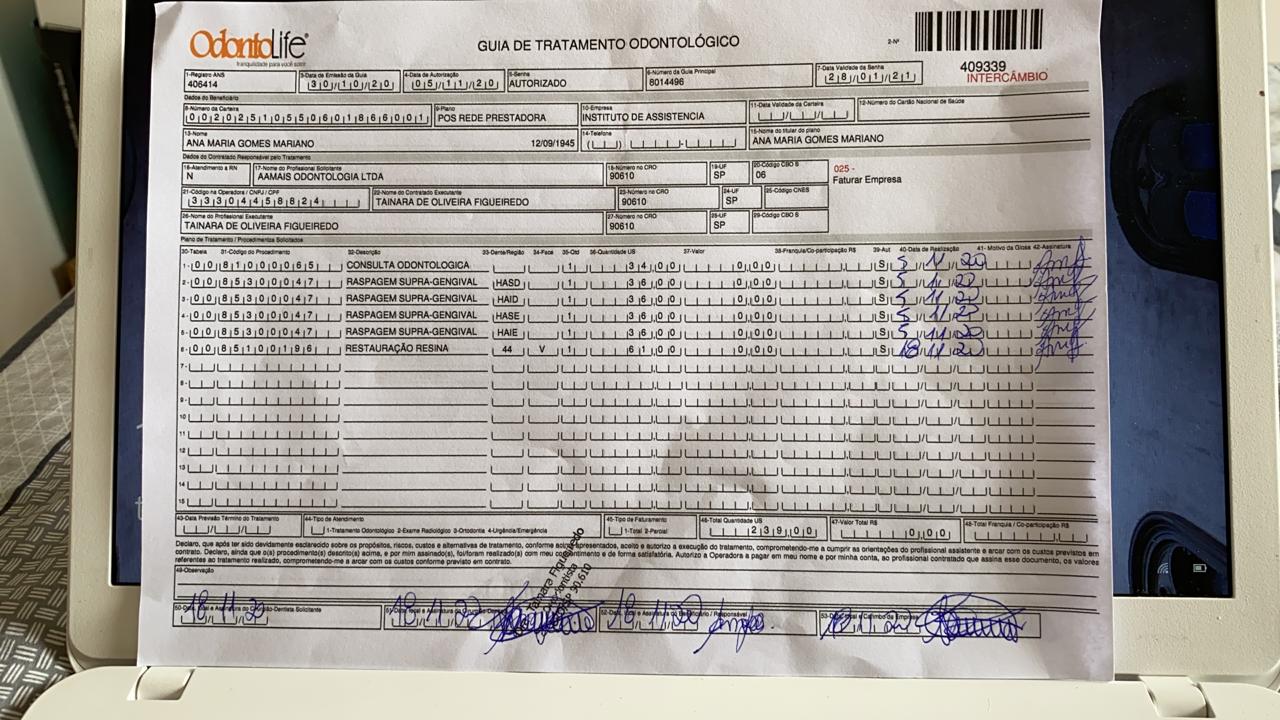 OdontoLife®
tranquilidade para você sorrir
GUIA DE TRATAMENTO ODONTOLÓGICO
2-Nº
409339
INTERCÂMBIO
1-Registro ANS 3-Data de Emissão da Guia 4-Data de Autorização 5-Senha 6-Número da Guia Principal 7-Data Validade da Senha
406414 30/10/20 05/11/20 AUTORIZADO 8014496 28/01/21
Dados do Beneficiário
8-Número da Carteira 9-Plano 10-Empresa 11-Data Validade da Carteira 12-Número do Cartão Nacional de Saúde
00202510550601866001 POS REDE PRESTADORA INSTITUTO DE ASSISTENCIA
13-Nome 14-Telefone 15-Nome do titular do plano
ANA MARIA GOMES MARIANO 12/09/1945 ANA MARIA GOMES MARIANO
Dados do Contratado Responsável pelo Tratamento
16-Atendimento a RN 17-Nome do Profissional Solicitante 18-Número no CRO 19-UF 20-Código CBO S
N AAMAIS ODONTOLOGIA LTDA 90610 SP 06
025 -
Faturar Empresa
21-Código na Operadora / CNPJ / CPF 22-Nome do Contratado Executante 23-Número no CRO 24-UF 25-Código CNES
33304458824 TAINARA DE OLIVEIRA FIGUEIREDO 90610 SP
26-Nome do Profissional Executante 27-Número no CRO 28-UF 29-Código CBO S
TAINARA DE OLIVEIRA FIGUEIREDO 90610 SP
Plano de Tratamento / Procedimentos Solicitados
30-Tabela 31-Código do Procedimento 32-Descrição 33-Dente/Região 34-Face 35-Qtd 36-Quantidade US 37-Valor 38-Franquia/Co-participação R$ 39-Aut 40-Data de Realização 41- Motivo da Glosa 42-Assinatura
1- 00 81000065 CONSULTA ODONTOLOGICA 1 34,00 0,00 S 5/11/20
2- 00 85300047 RASPAGEM SUPRA-GENGIVAL HASD 1 36,00 0,00 S 5/11/20
3- 00 85300047 RASPAGEM SUPRA-GENGIVAL HAID 1 36,00 0,00 S 5/11/20
4- 00 85300047 RASPAGEM SUPRA-GENGIVAL HASE 1 36,00 0,00 S 5/11/20
5- 00 85300047 RASPAGEM SUPRA-GENGIVAL HAIE 1 36,00 0,00 S 5/11/20
6- 00 85100196 RESTAURAÇÃO RESINA 44 V 1 61,00 0,00 S 18/11/20
7-
8-
9-
10
11
12
13
14
15
43-Data Previsão Término do Tratamento 44-Tipo de Atendimento 45-Tipo de Faturamento 46-Total Quantidade US 47-Valor Total R$ 48-Total Franquia / Co-participação R$
1-Tratamento Odontológico 2-Exame Radiológico 3-Ortodontia 4-Urgência/Emergência 1-Total 2-Parcial 239,00 0,00
Declaro, que após ter sido devidamente esclarecido sobre os propósitos, riscos, custos e alternativas de tratamento, conforme acima apresentados, aceito e autorizo a execução do tratamento, comprometendo-me a cumprir as orientações do profissional assistente e arcar com os custos previstos em
contrato. Declaro, ainda que o(s) procedimento(s) descrito(s) acima, e por mim assinado(s), foi/foram realizado(s) com meu consentimento e de forma satisfatória. Autorizo a Operadora a pagar em meu nome e por minha conta, ao profissional contratado que assina esse documento, os valores
referentes ao tratamento realizado, comprometendo-me a arcar com os custos conforme previsto em contrato.
49-Observação
Figueiredo
90.610
18/11/20 18/11/20 18/11/20